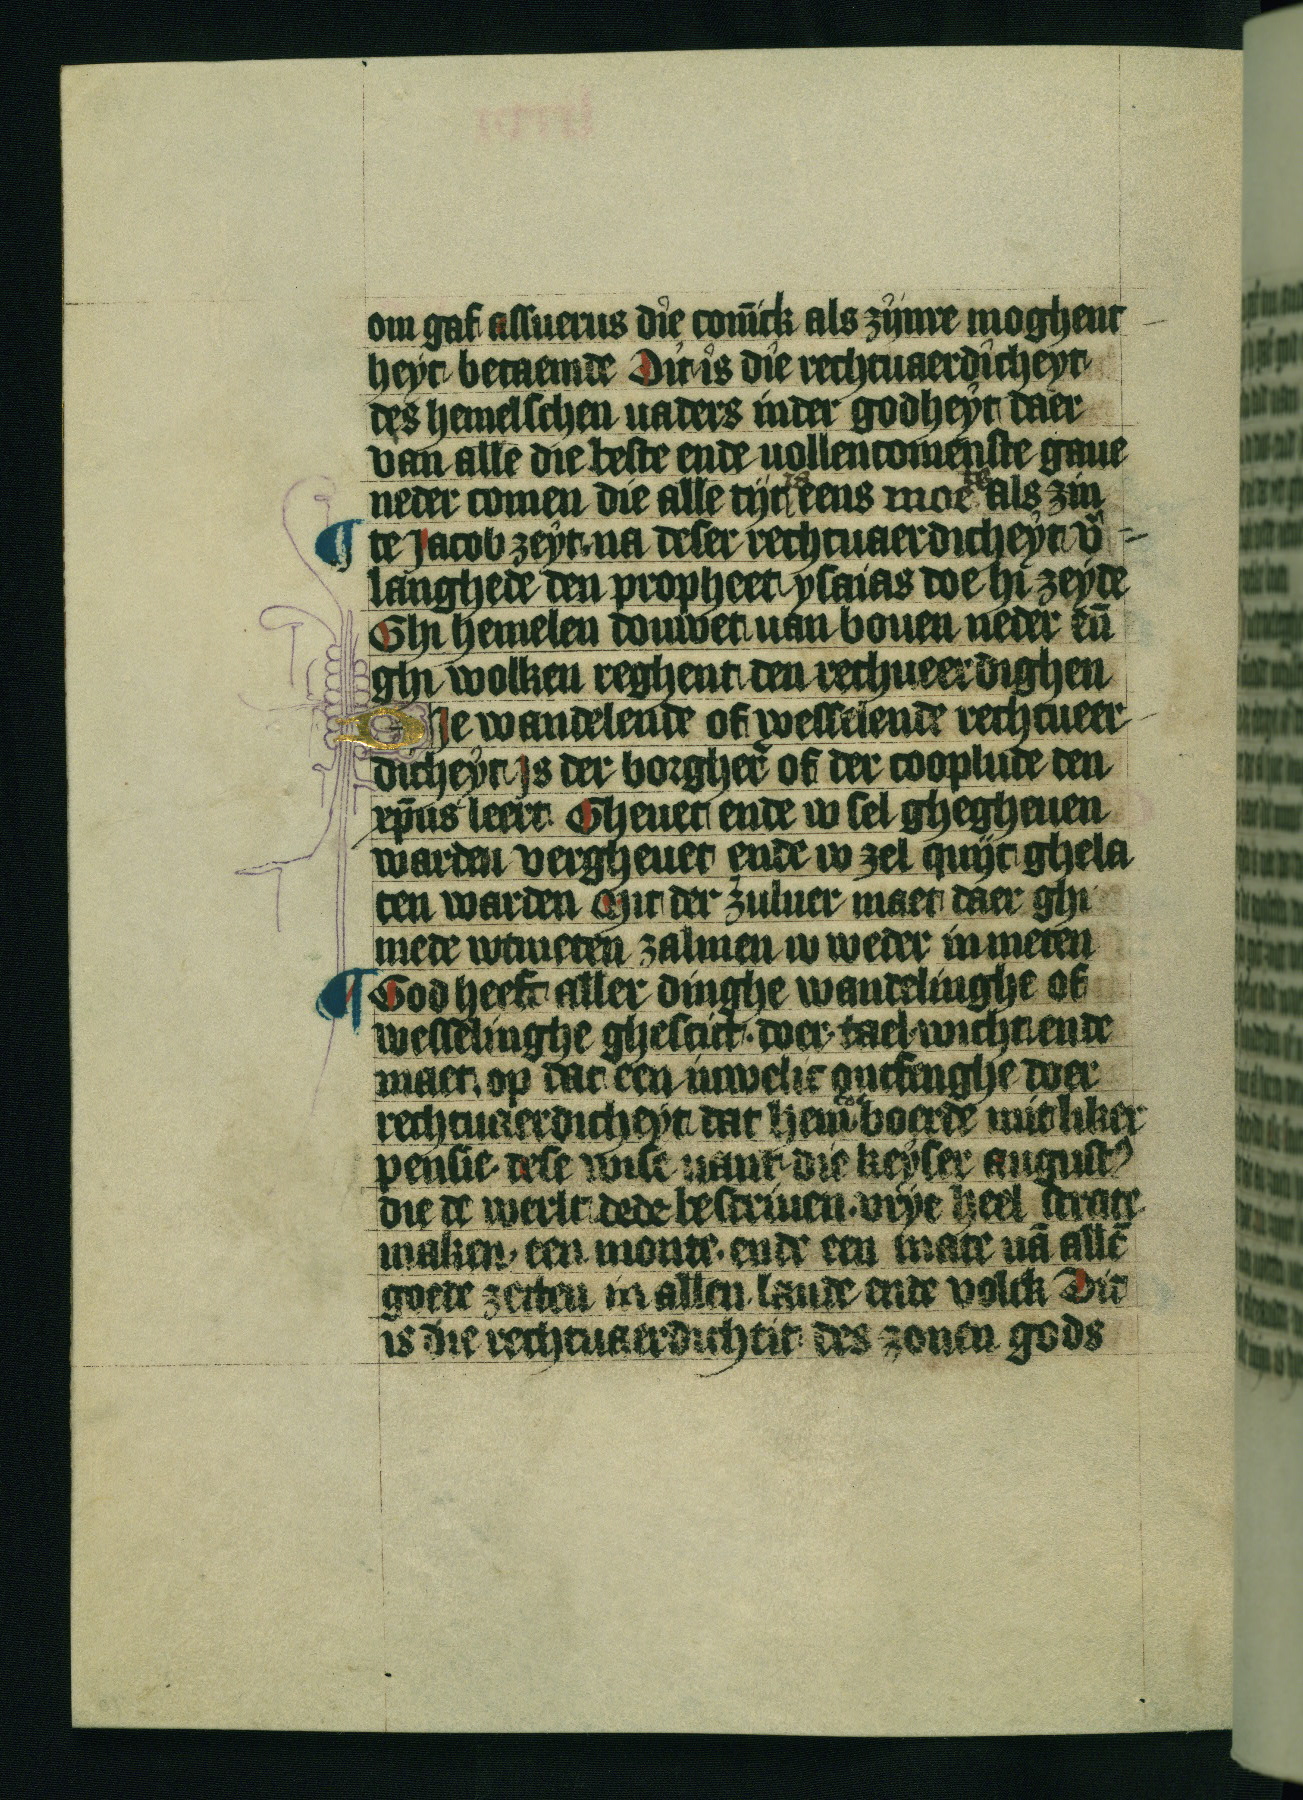 om gaf assuerus die conīck als zijnre moghent
heyt betaemde Dit is die rechtuaerdicheyt
des hemelschen uaders inder godheyt daer
van alle die beste ende uollencomenste gaue
neder comen die alle tijt eens moe als zin
te Jacob zeyt na deser rechtuaerdicheyt v̄
langhede den propheet ysaias doe hi zeyde
Ghi hemelen douwet uan bouen neder eñ
ghi wolken reghent den rechueerdighen
Die wandelende of wesselende rechtueer
dicheyt Js der borgher̄ of der cooplude den
xp̄us leert Gheuet ende w sel ghegheuen
warden vergheuet ende w zel quijt ghela
ten warden Mit der zuluer maet daer ghi
mede wtmeten zalmen w weder in meten
God heeft aller dinghe wandelinghe of
wesselinghe ghescict doer tael wicht ende
maet op dat een uwelic ontfenghe doer
rechtuaerdicheyt dat hem boerde mit liker
pensie dese wise uant die keyser august⁹
die de werlt dede bescriuen vrye heel strate
maken een monte ende een mate uā allē
goede zeden in allen lande ende volck Dit
is die rechtuaerdichtit des zonen gods